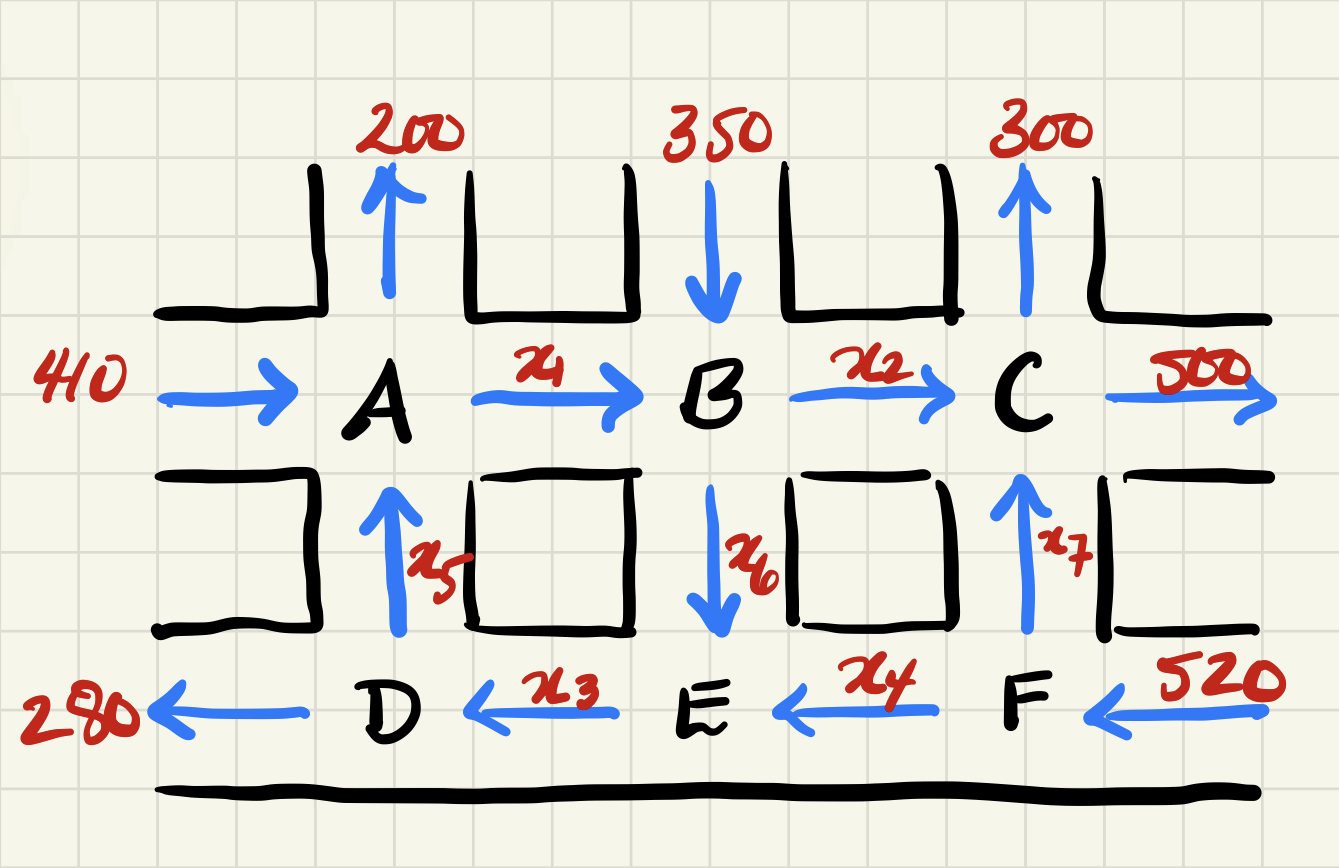 200 350 300
410 A x1 B x2 C 500
x5 x6 x7
280 D x3 E x4 F 520